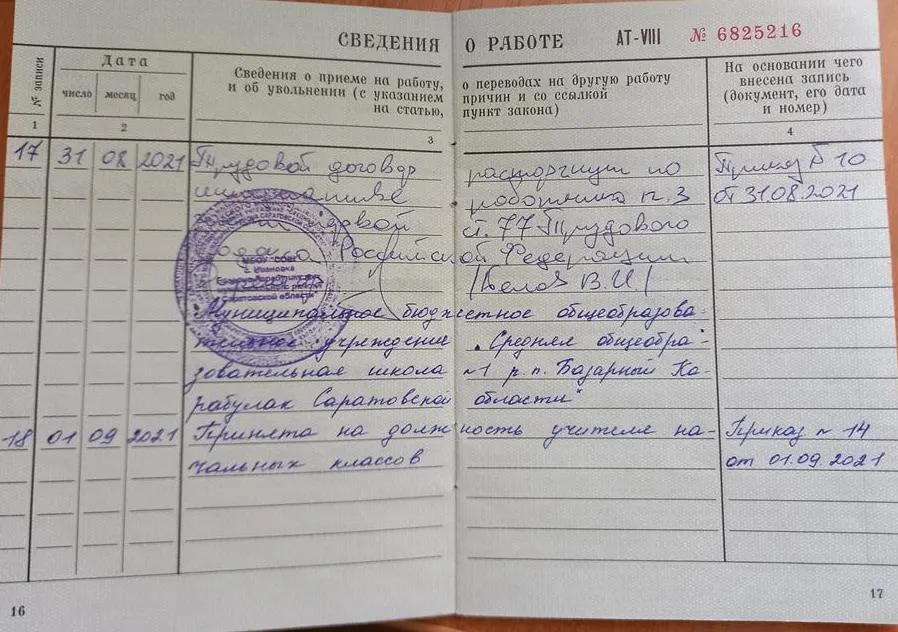 СВЕДЕНИЯ О РАБОТЕ АТ-VIII № 6825216
№ записи
Дата
число месяц год
Сведения о приеме на работу, о переводах на другую работу
и об увольнении (с указанием причин и со ссылкой
на статью, пункт закона)
На основании чего
внесена запись
(документ, его дата
и номер)
1 2 3 4
17 31 08 2021 Трудовой договор расторгнут по Приказ № 10
инициативе работника п. 3 от 31.08.2021
ст. 77 Трудового
кодекса Российской Федерации
/Белов В.И./
Муниципальное бюджетное общеобразова-
тельное учреждение "Средняя общеобра-
зовательная школа №1 р.п. Базарный Ка-
рабулак Саратовской области"
18 01 09 2021 Принята на должность учителя на- Приказ № 14
чальных классов от 01.09.2021
16 17